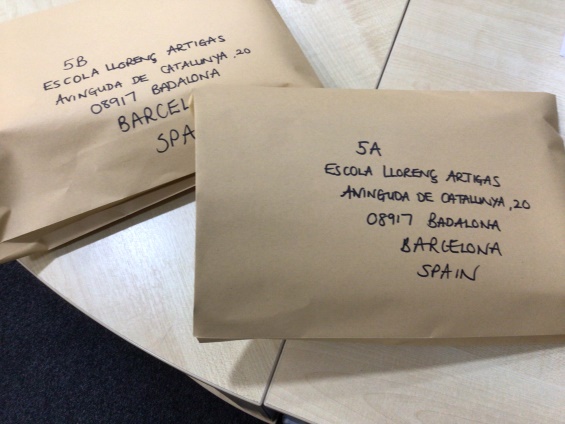 5B
ESCOLA LLORENÇ ARTIGAS
AVINGUDA DE CATALUNYA, 20
08917 BADALONA
BARCEL
SPA
5A
ESCOLA LLORENÇ ARTIGAS
AVINGUDA DE CATALUNYA, 20
08917 BADALONA
BARCELONA
SPAIN